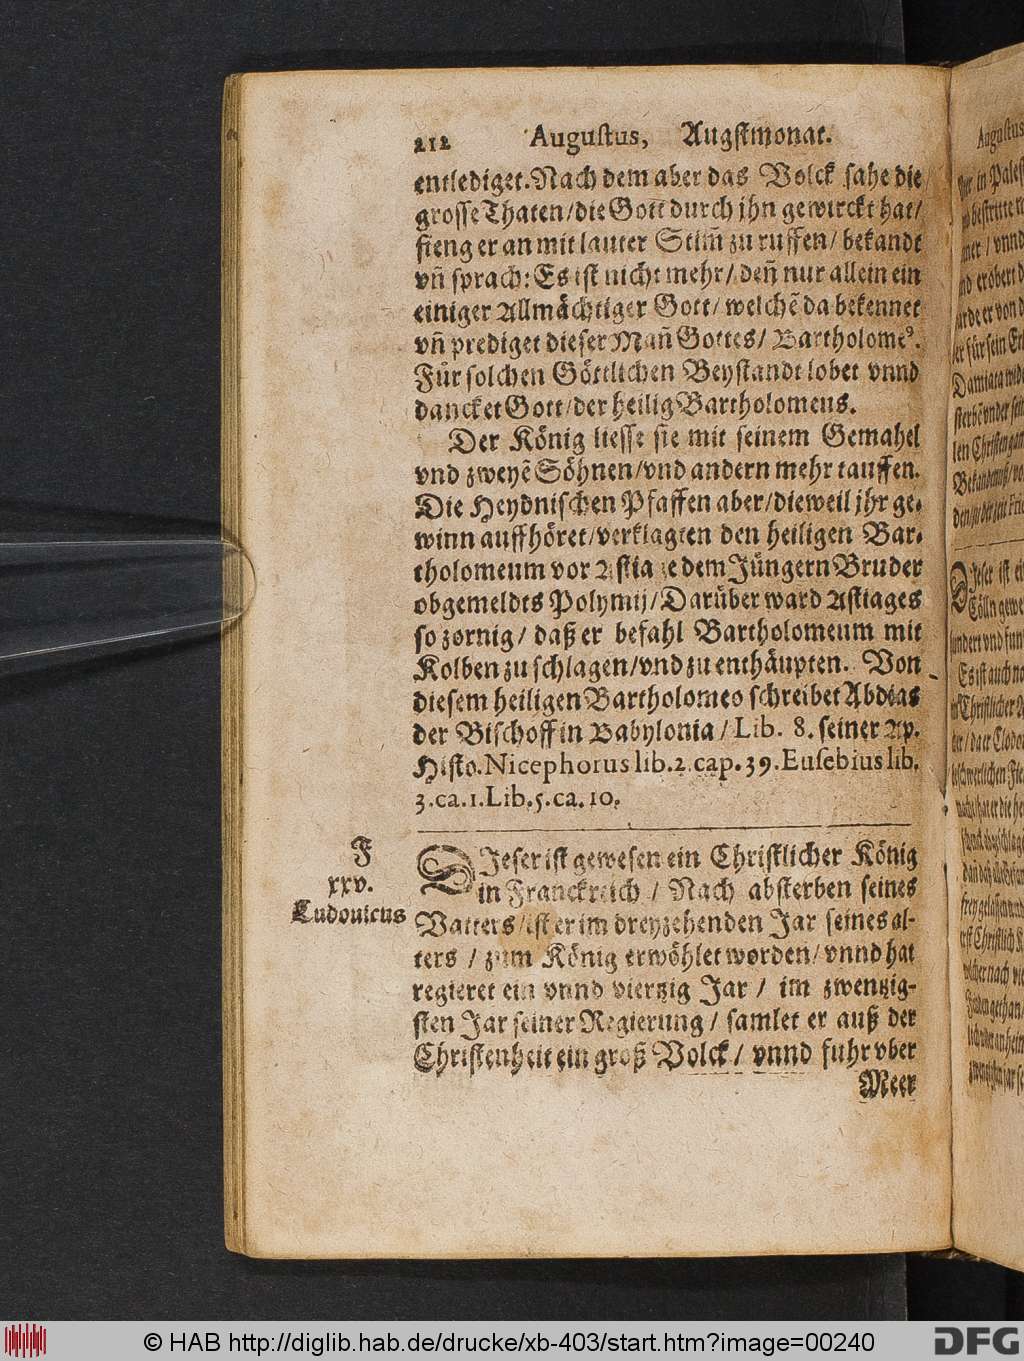 212 Augustus, Augstmonat.
entlediget. Nach dem aber das Volck sahe die
grosse Thaten/ die Gott durch jhn gewirckt hat/
fieng er an mit lauter Stim̃ zu ruffen/ bekandt
vñ sprach: Es ist nicht mehr/ deñ nur allein ein
einiger Allmächtiger Gott/ welchẽ da bekennet
vñ prediget dieser Mañ Gottes/ Bartholomeꝰ.
Für solchen Göttlichen Beystandt lobet vnnd
dancket Gott/ der heilig Bartholomeus.
Der König liesse sie mit seinem Gemahel
vnd zweyẽ Söhnen/ vnd andern mehr tauffen.
Die Heydnischen Pfaffen aber/ dieweil jhr ge-
winn auffhöret/ verklagten den heiligen Bar-
tholomeum vor Astiage dem Jüngern Bruder
obgemeldts Polymij/ Darüber ward Astiages
so zornig/ daß er befahl Bartholomeum mit
Kolben zu schlagen/ vnd zu enthäupten. Von
diesem heiligen Bartholomeo schreibet Abdias
der Bischoff in Babylonia/ Lib. 8. seiner Ap.
Histo. Nicephorus lib. 2. cap. 39. Eusebius lib.
3. ca. 1. Lib. 5. ca. 10.
F
xxv.
Ludouicus
DJeser ist gewesen ein Christlicher König
in Franckreich/ Nach absterben seines
Vatters/ ist er im dreyzehenden Jar seines al-
ters/ zum König erwöhlet worden/ vnnd hat
regieret ein vnnd viertzig Jar/ im zwentzig-
sten Jar seiner Regierung/ samlet er auß der
Christenheit ein groß Volck/ vnnd fuhr vber
Meer
© HAB http://diglib.hab.de/drucke/xb-403/start.htm?image=00240
DFG